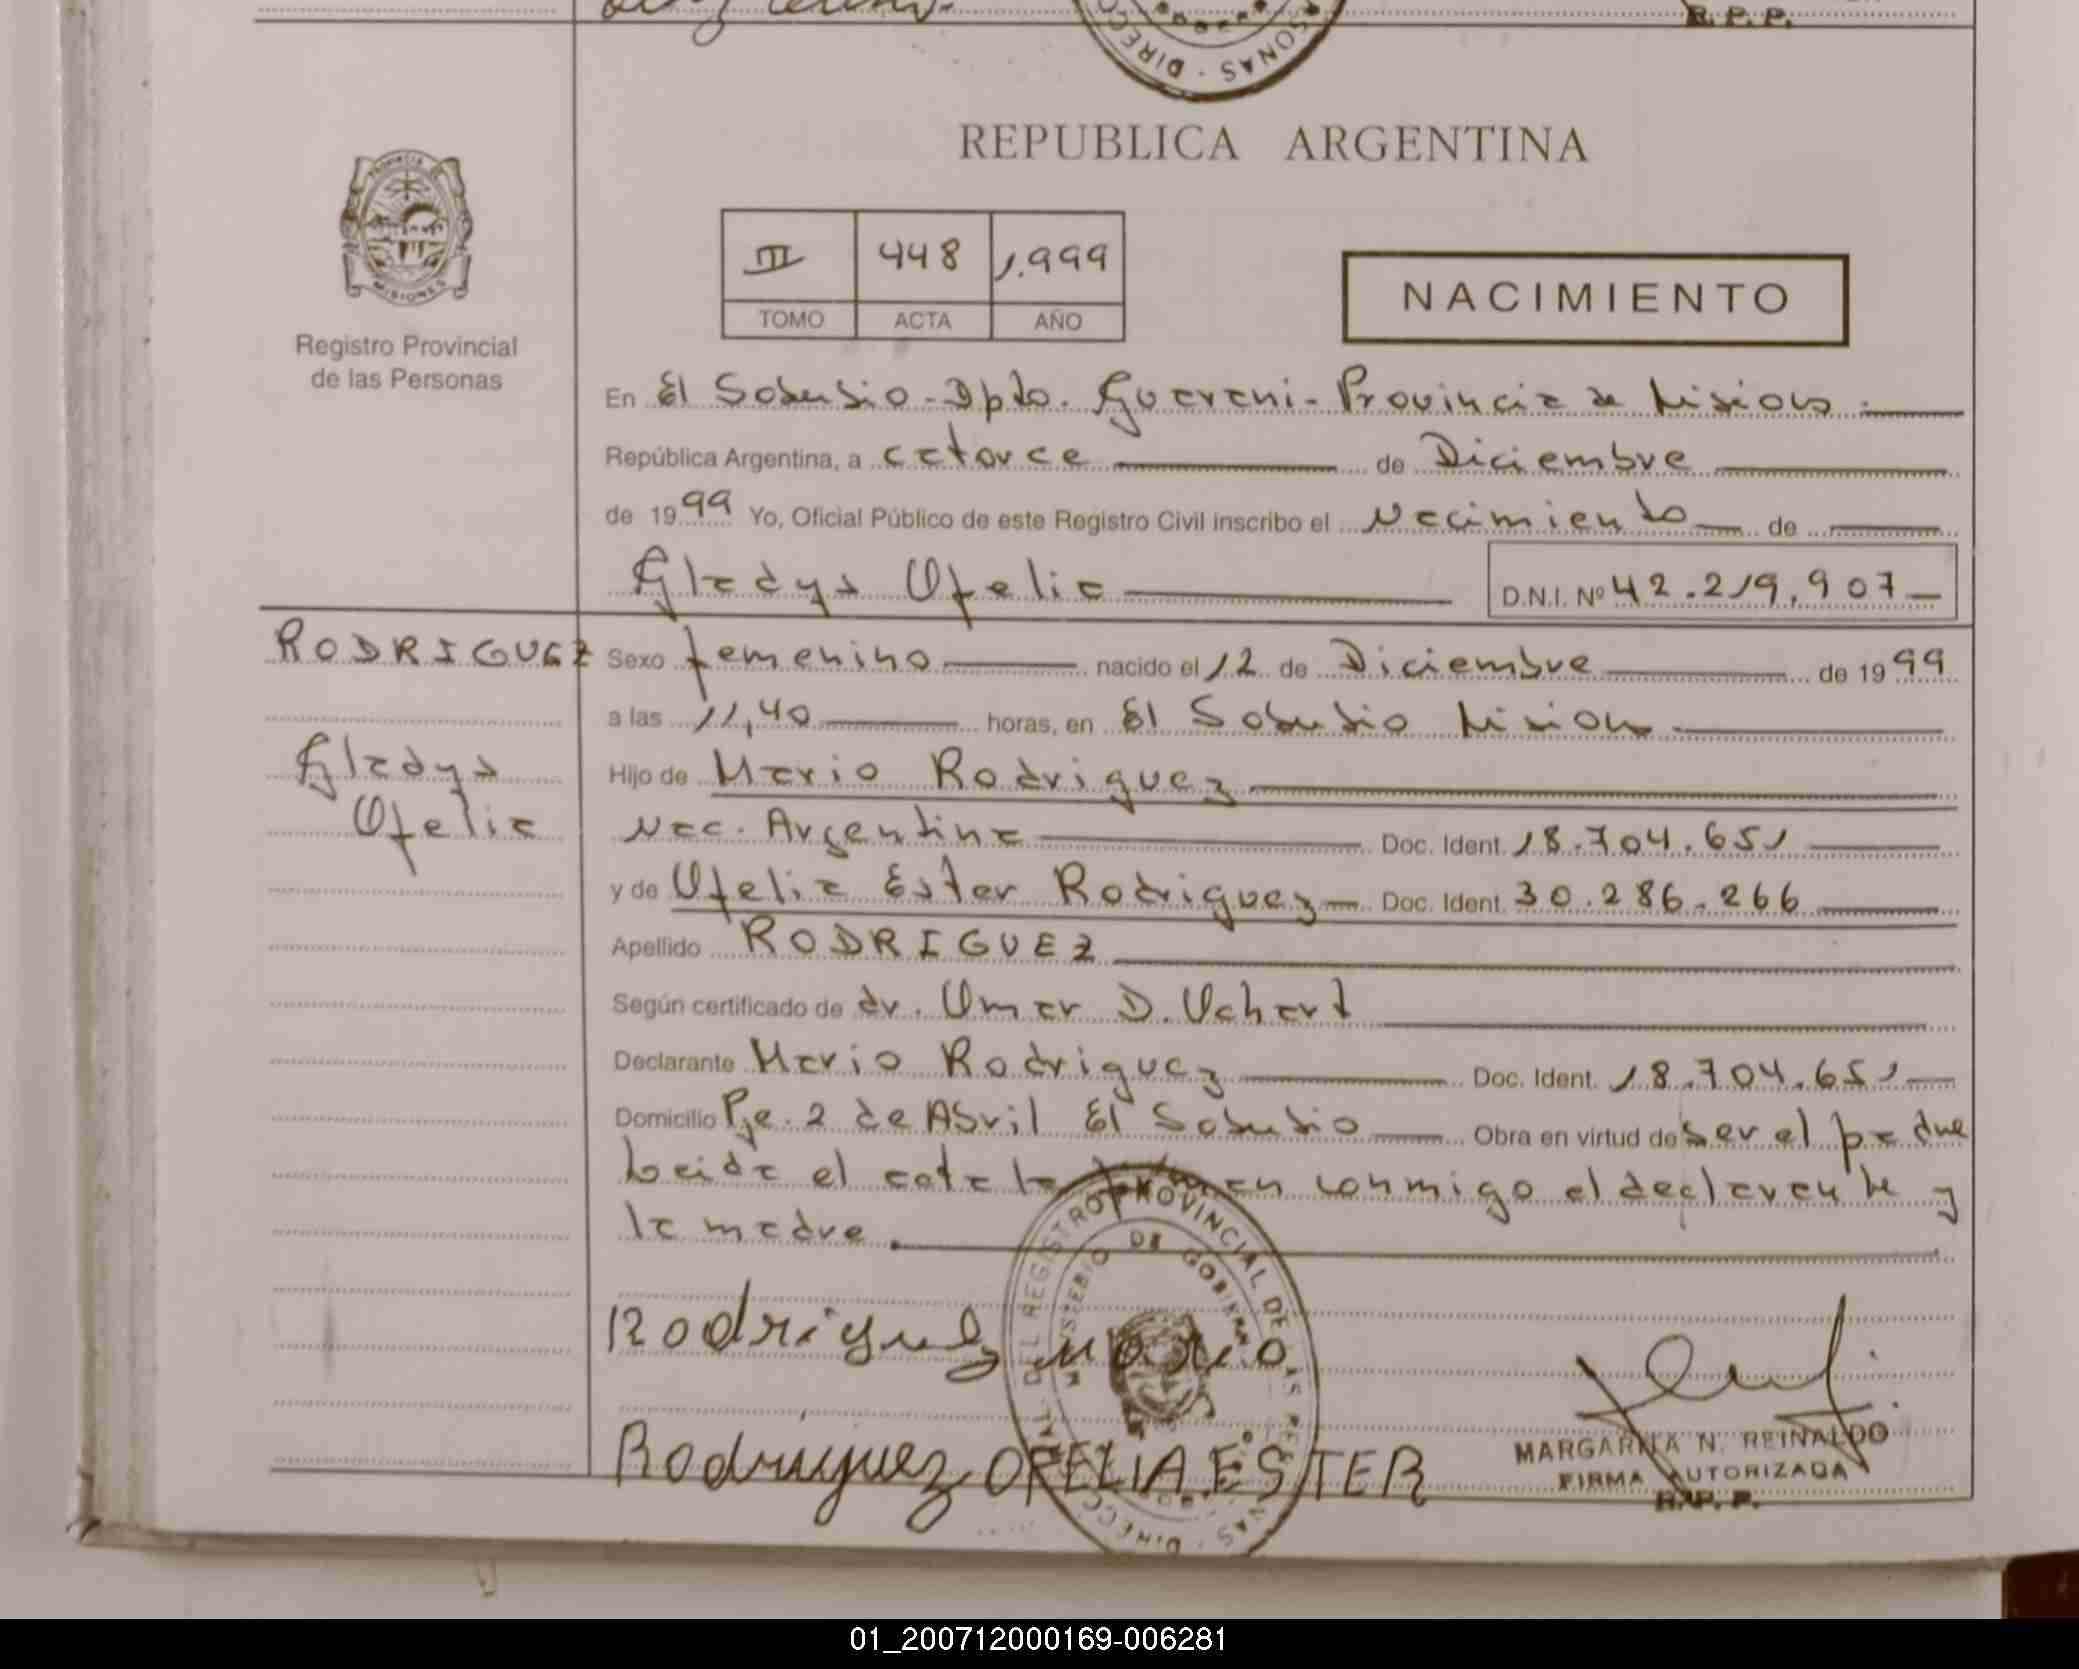 R. P. P.
SONAS - DIREC
REPUBLICA ARGENTINA
PROVINCIA DE
MISIONES
Registro Provincial
de las Personas
III 448 1.999
TOMO ACTA AÑO
NACIMIENTO
En El Soberbio - Dpto. Guarani - Provincia de Misiones.
República Argentina, a catorce de Diciembre
de 1999 Yo, Oficial Público de este Registro Civil inscribo el Nacimiento de
Gladys Ofelia D.N.I. Nº 42.219.907
RODRIGUEZ Sexo femenino nacido el 12 de Diciembre de 1999
a las 11,40 horas, en El Soberbio Misiones
Gladys Hijo de Mario Rodriguez
Ofelia Nac. Argentina Doc. Ident. 18.704.651
y de Ofelia Ester Rodriguez Doc. Ident. 30.286.266
Apellido RODRIGUEZ
Según certificado de dr. Omar D. Ochart
Declarante Mario Rodriguez Doc. Ident. 18.704.651
Domicilio Pje. 2 de Abril El Soberbio Obra en virtud de ser el padre
Leida el acta la firman conmigo el declarante y
la madre.
Rodriguez Mario
Rodriguez OFELIA ESTER
DEL REGISTRO PROVINCIAL DE LAS PERSONAS - DIRECC
MINISTERIO DE GOBIERNO
MARGARITA N. REINALDO
FIRMA AUTORIZADA
R. P. P.
01_200712000169-006281